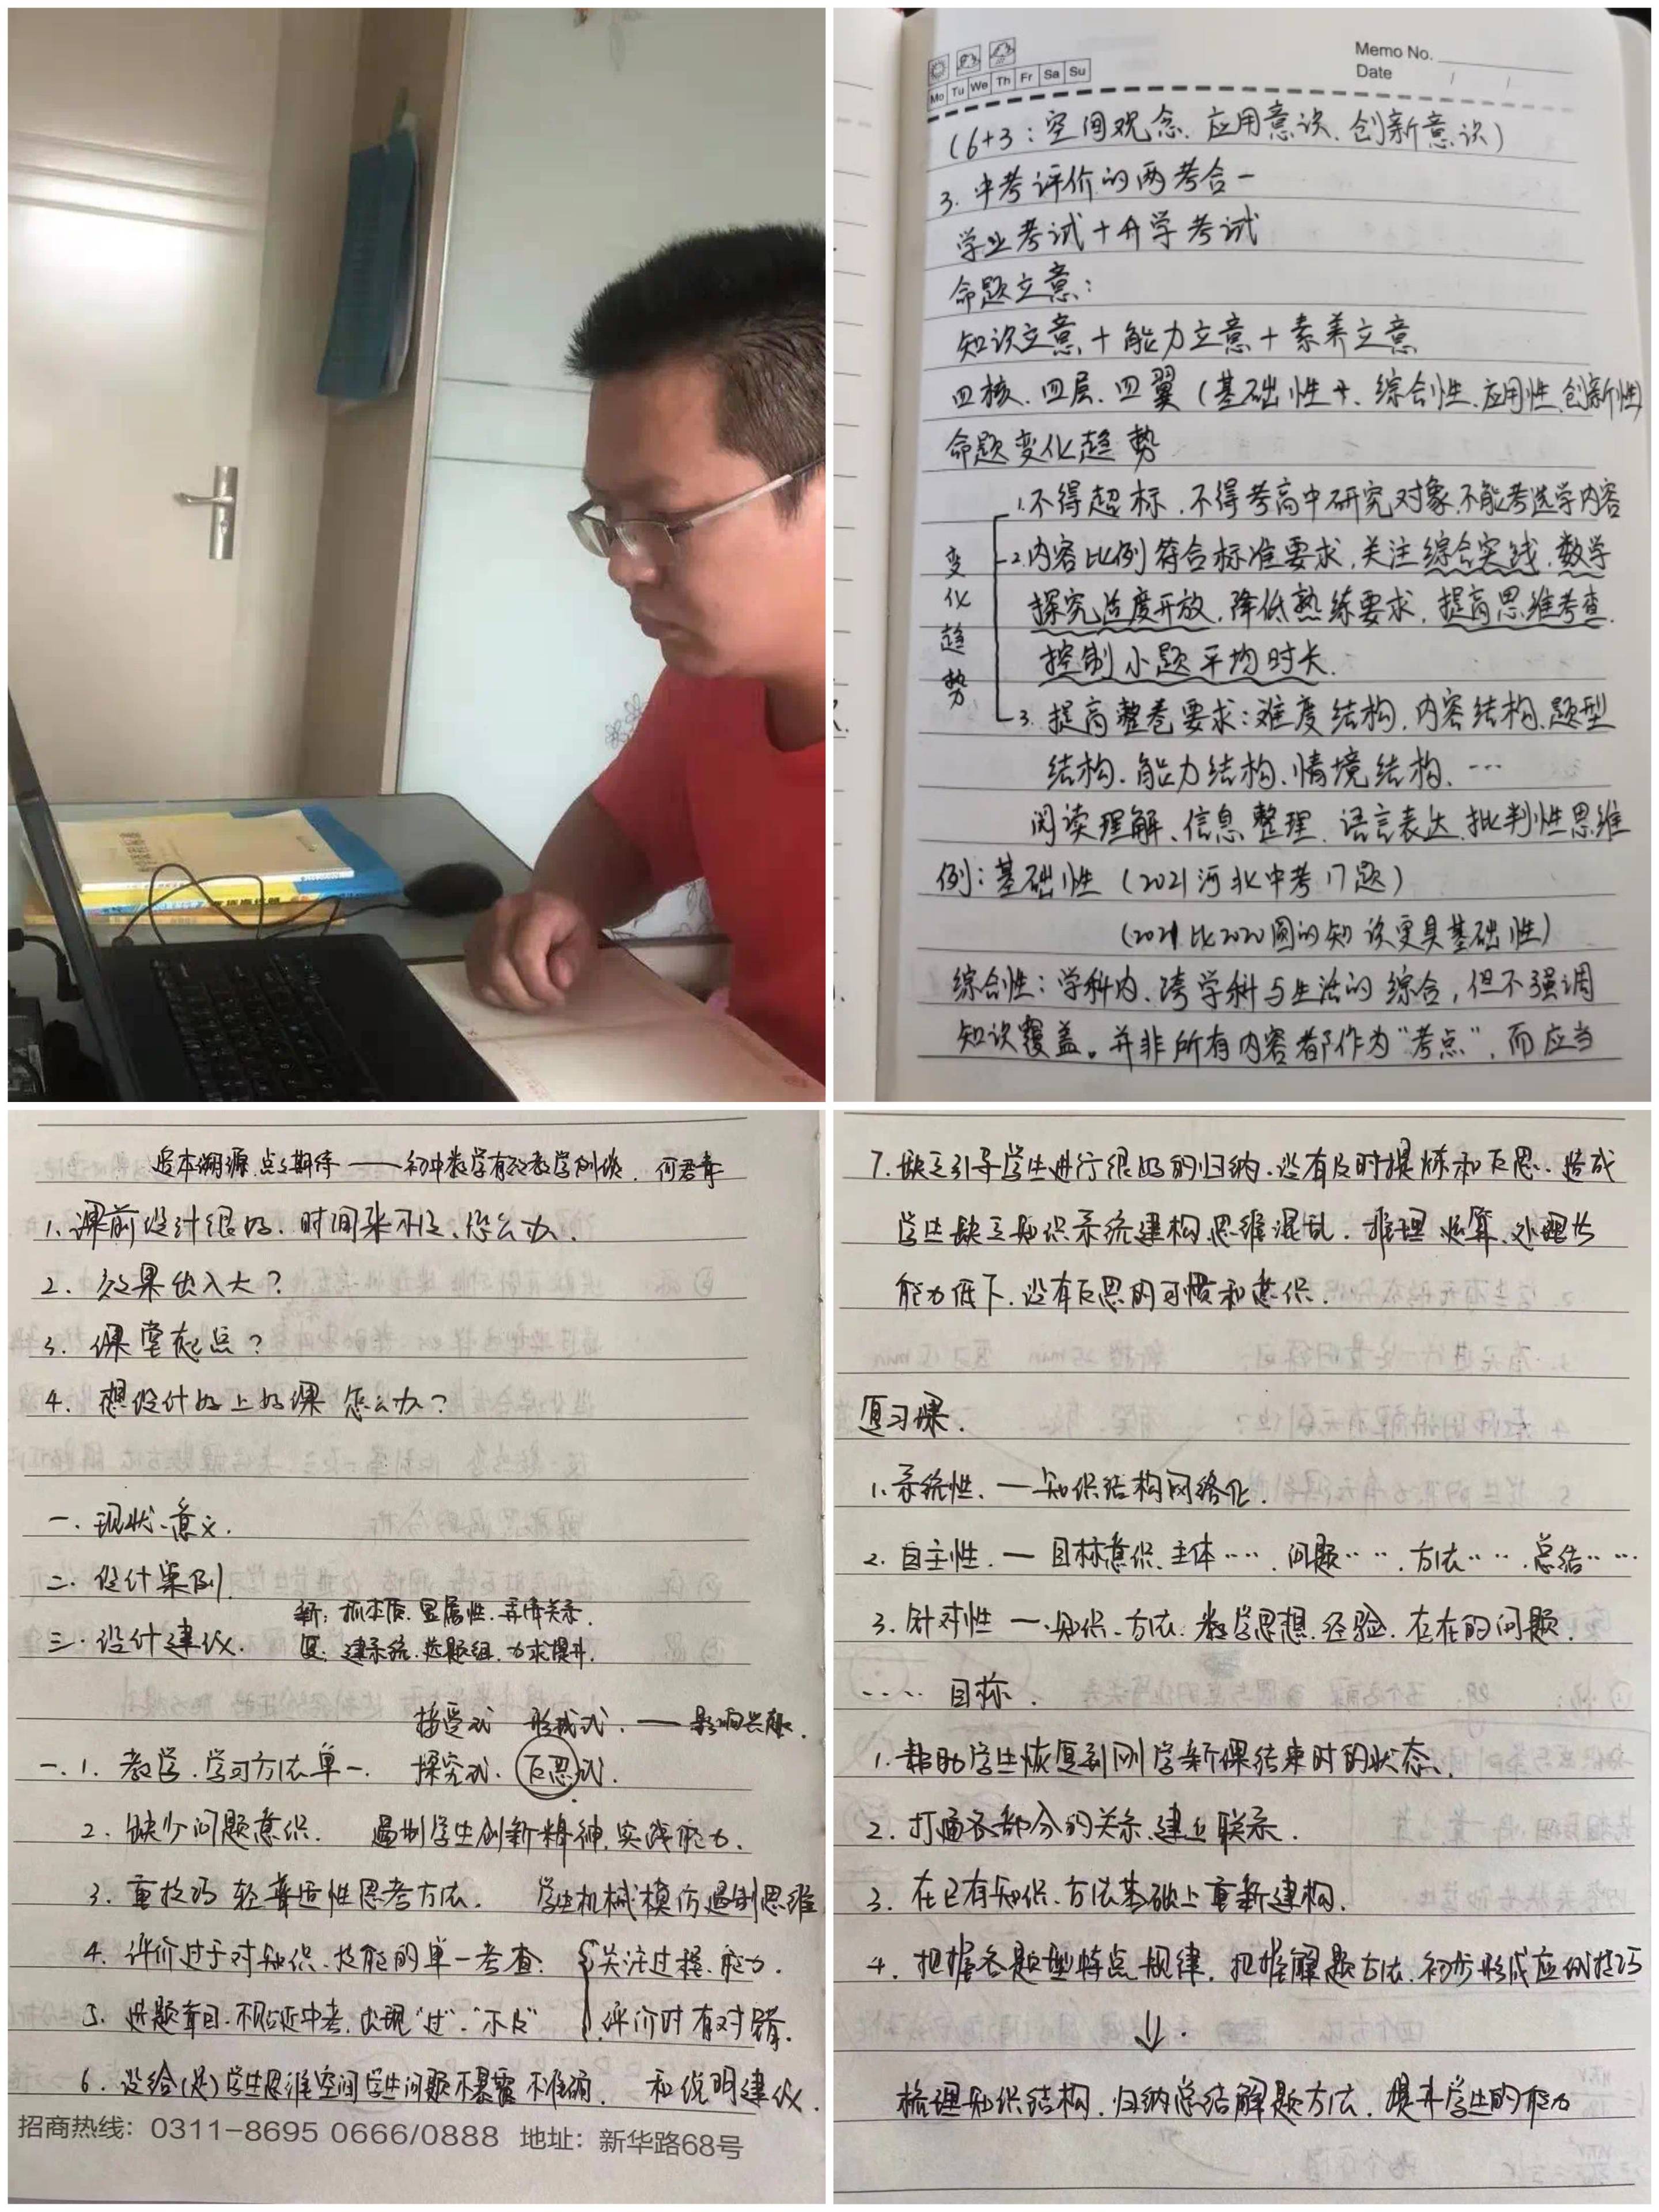 Memo No.
Date
Mo Tu We Th Fr Sa Su
(6+3：空间观念、应用意识、创新意识)
3. 中考评价的两考合一
学业考试+升学考试
命题立意：
知识立意+能力立意+素养立意
四核、四层、四翼（基础性、综合性、应用性、创新性）
命题变化趋势
变化趋势
1.不得超标，不得考高中研究对象，不能考选学内容
2.内容比例符合标准要求，关注综合实践、数学
探究适度开放，降低熟练要求，提高思维考查，
控制小题平均时长.
3. 提高整卷要求：难度结构，内容结构、题型
结构、能力结构、情境结构、…
阅读理解、信息整理、语言表达、批判性思维
例：基础性（2021河北中考17题）
（2021比2020圆的知识更具基础性）
综合性：学科内、跨学科与生活的综合，但不强调
知识覆盖。并非所有内容都作为“考点”，而应当
追本溯源 点点期待——初中数学有效教学例谈. 何君青
1. 课前设计很好、时间来不及、怎么办.
2. 效果出入大？
3. 课堂起点？
4. 想设计好上好课 怎么办？
一. 现状、意义.
二. 设计案例.
新：抓本质. 显属性. 弄清关系.
三. 设计建议.
复：建系统. 选题组. 力求提升.
接受式 形成式. — 影响兴趣.
一. 1. 教学. 学习方法单一. 探究式. 反思式.
2. 缺少问题意识. 遏制学生创新精神. 实践能力.
3. 重技巧 轻普适性思考方法. 学生机械模仿遏制思维
4. 评价过于对知识、技能的单一考查. 关注过程、能力.
5. 选题盲目. 不贴近中考. 出现“过”、“不及” 评价时有对错.
6. 没给(足)学生思维空间学生问题不暴露 不准确. 和说明建议.
招商热线：0311-8695 0666/0888 地址：新华路68号
7. 缺乏引导学生进行很好的归纳. 没有及时提炼和反思. 造成
学生缺乏知识系统建构思维混乱. 推理 运算、处理等
能力低下. 没有反思的习惯和意识.
复习课.
1. 系统性. — 知识结构网络化.
2. 自主性. — 目标意识、主体…… 问题…… 方法…… 总结……
3. 针对性 — 知识、方法、数学思想. 经验. 存在的问题.
…… 目标.
1. 帮助学生恢复到刚学新课结束时的状态.
2. 打通各部分的关系、建立联系.
3. 在已有知识、方法基础上重新建构.
4. 把握各题型特点 规律. 把握解题方法. 初步形成应例技巧
↓.
梳理知识结构. 归纳总结解题方法. 提升学生的能力